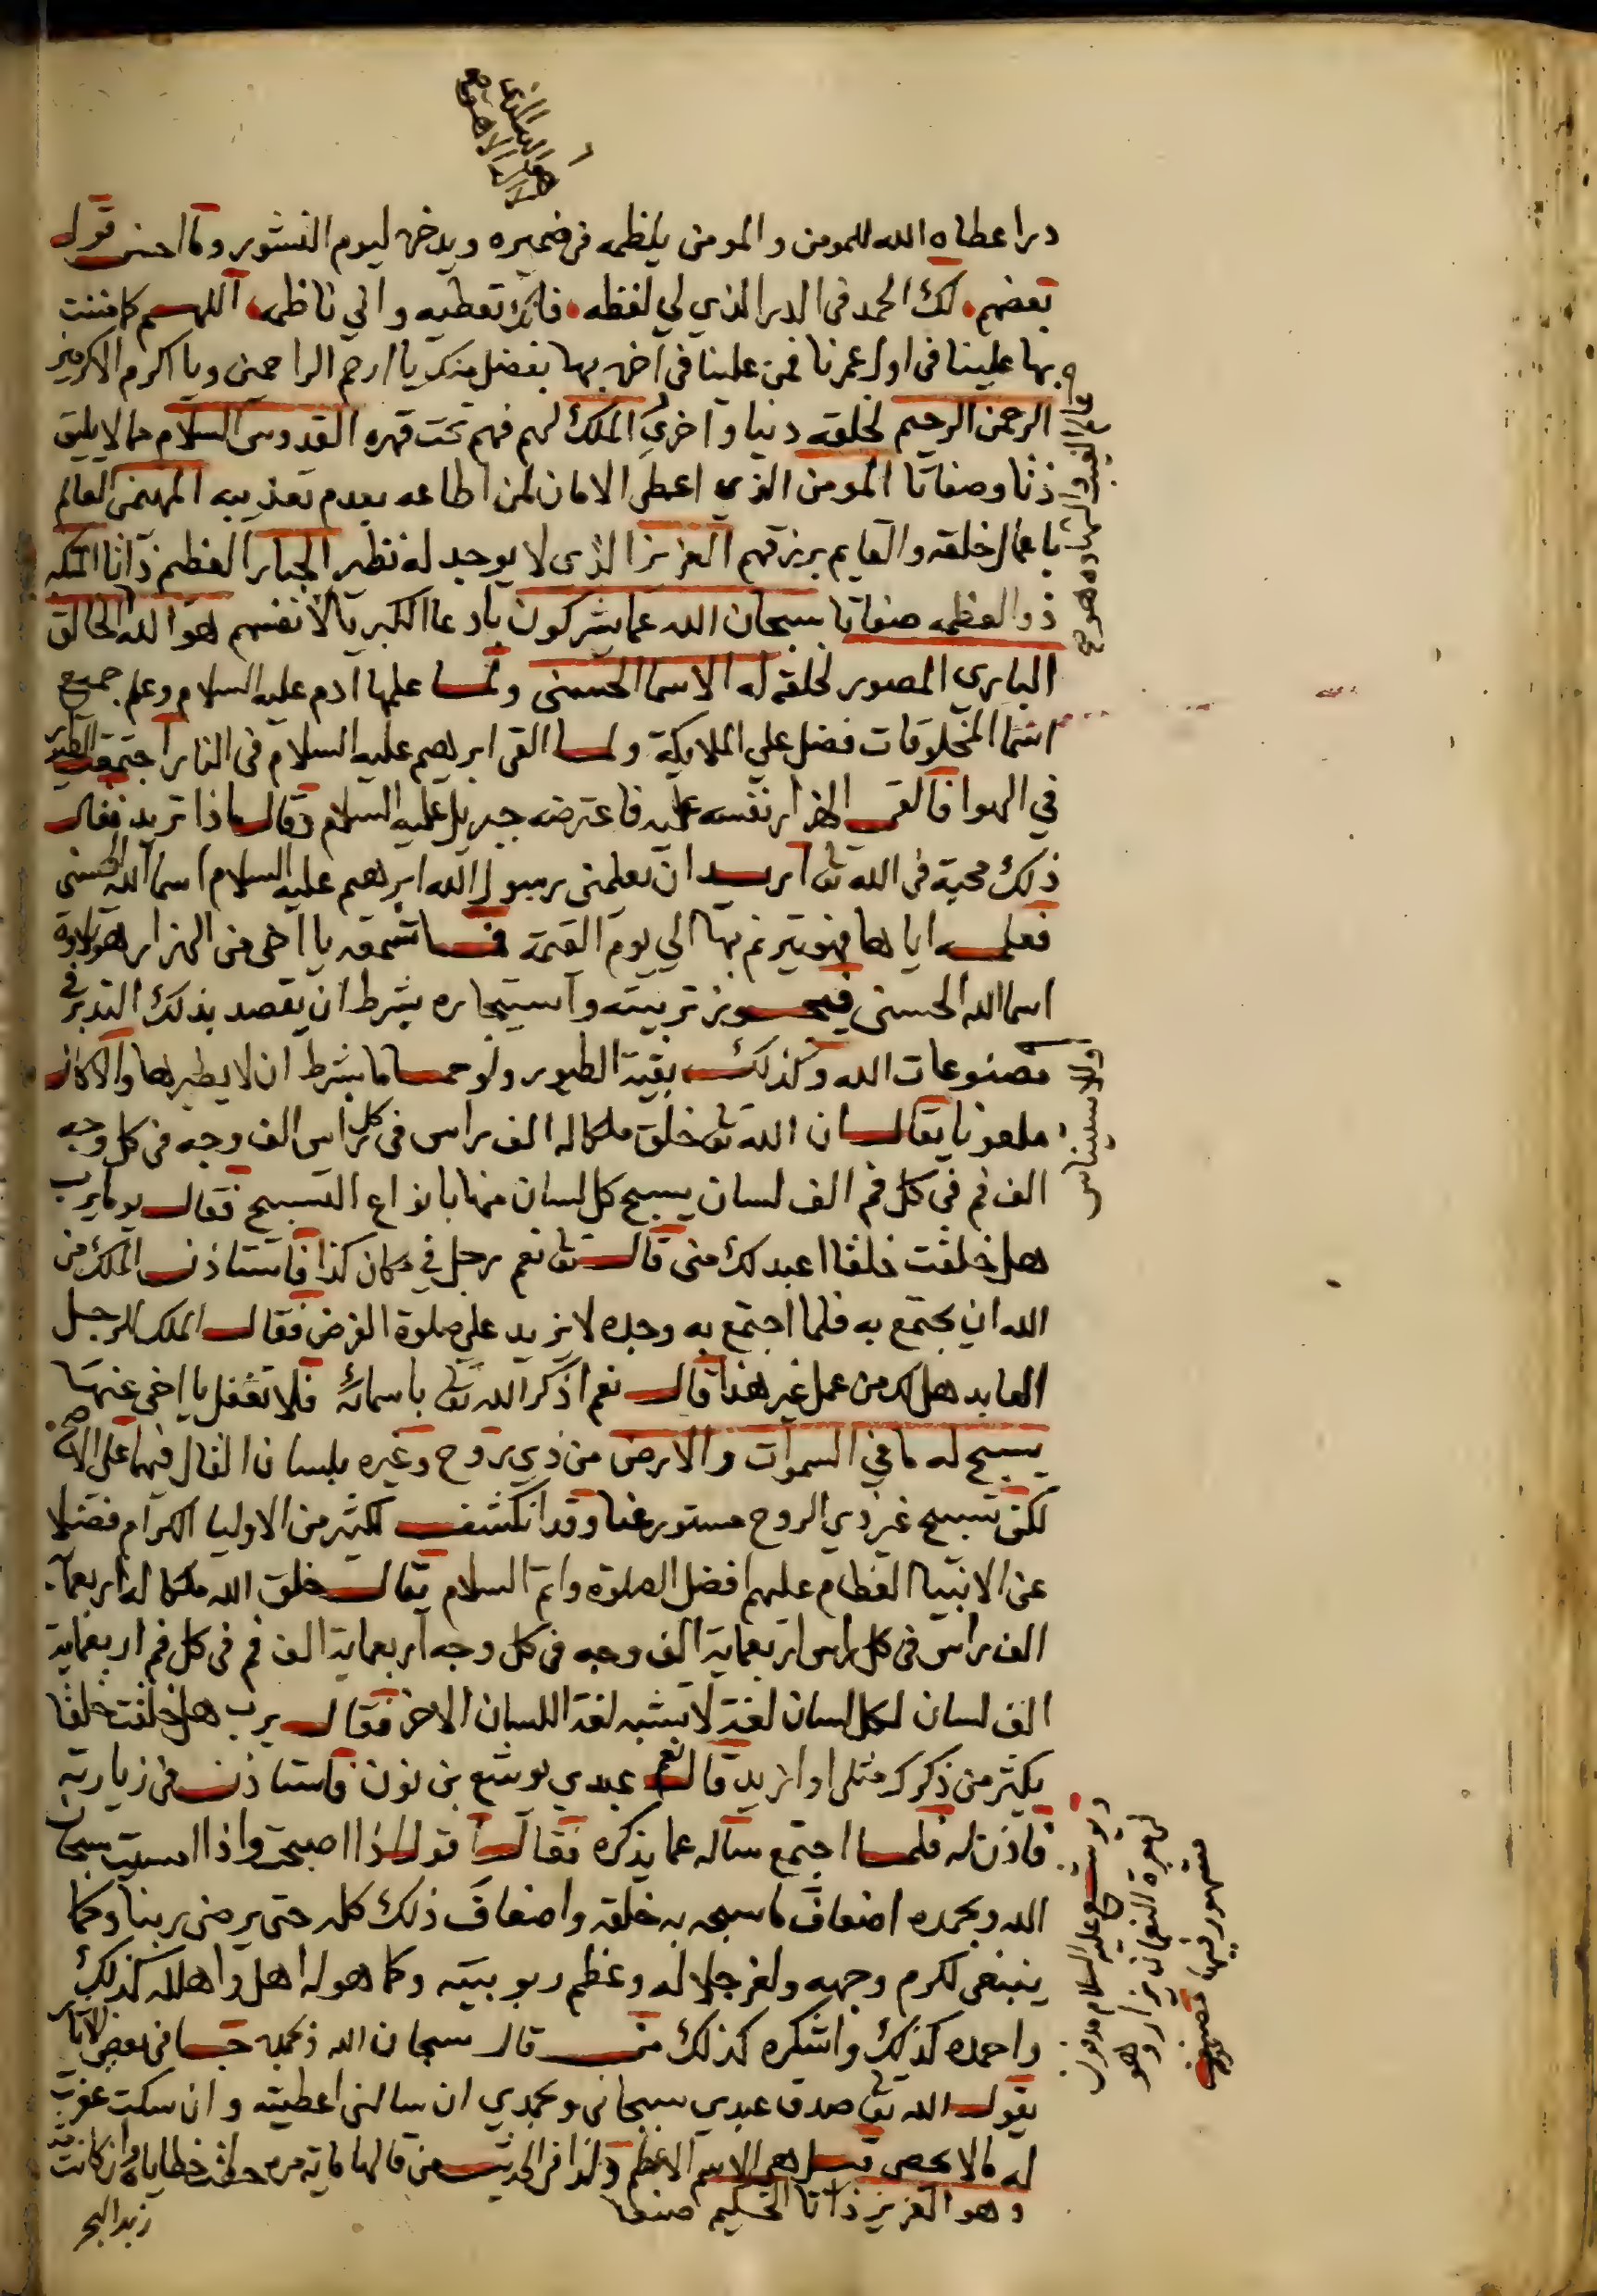 درا عطاه الله للمومن والمومن ينظمه في ضميره ويدخره ليوم النشور وما احسن قول
بعضهم لك الحمد في الدر الذي لي لفظه فانك تعطيه واني ناظمه اللهم كما مننت
بها علينا في اول عمرنا فمن علينا في اخره بها بفضل منك يا ارحم الراحمين ويا اكرم الاكرمين
الرحمن الرحيم لخلقه دنيا واخري الملك لهم فهم تحت قهره القدوس السلام مما لا يليق
ذاتا وصفاتا المومن الذي اعطي الامان لمن اطاعه بعدم تعذيبه المهيمن العالم
باعمال خلقه والقايم برزقهم العزيز الذي لا يوجد له نظير الجبار العظيم ذاتا المتكبر
ذو العظمه صفاتا سبحان الله عما يشركون بادعا الكبريا لانفسهم هو الله الخالق
الباري المصور لخلقه له الاسما الحسنى ولما علمها ادم عليه السلام وعلم جميع
اسما المخلوقات فضل علي الملايكة ولما القى ابرهيم عليه السلام في النار اجتمعت الطيور
في الهوا فالقى الهزار نفسه عليه فاعترضه جبريل عليه السلام وقال ماذا تريد فقال
ذلك محبة في الله تعالى اريد ان يعلمني رسول الله ابرهيم عليه السلام اسما الله الحسنى
فعلمه اياها فهو يترنم بها الي يوم القيمة فما تسمعه يا اخي من الهزار هو تلاوة
اسما الله الحسنى فيجوز تربيته واستيجاره بشرط ان يقصد بذلك التدبر في
مصنوعات الله وكذلك بقية الطيور ولو حماما بشرط ان لا يطيرها والا كان
ملعونا يقال ان الله تعالى خلق ملكا له الف راس في كل راس الف وجه في كل وجه
الف فم في كل فم الف لسان يسبح كل لسان منها بانواع التسبيح فقال يوما يرب
هل خلقت خلقا اعبد لك مني قال تعالى نعم رجل في مكان كذا فاستاذن الملك من
الله ان يجتمع به فلما اجتمع به وجده لا يزيد علي صلوة الفرض فقال الملك للرجل
العابد هل لك من عمل غير هذا قال نعم اذكر الله تعالى باسمائه فلا تغفل يا اخي عنها
يسبح له ما في السموات والارض من ذي روح وغيره بلسان القال فيهما علي الاصح
لكن تسبيح غير ذي الروح مستور عنا وقد انكشف لكثير من الاوليا الكرام فضلا
عن الانبيا العظام عليهم افضل الصلوة واتم السلام يقال خلق الله ملكا له اربعماية
الف راس في كل راس اربعماية الف وجه في كل وجه اربعماية الف فم في كل فم اربعماية
الف لسان لكل لسان لغة لا تشبه لغة اللسان الاخر فقال يرب هل خلقت خلقا
يكثر من ذكرك مثلي او ازيد قال نعم عبدي يوشع بن نون فاستاذن في زيارته
فاذن له فلما اجتمع ساله عما يذكره فقال اقول اذا اصبحت واذا امسيت سبحان
الله وبحمده اضعاف ما سبحه به خلقه واضعاف ذلك كله حتى يرضى ربنا وكما
ينبغي لكرم وجهه ولعز جلاله وعظم ربوبيته وكما هو له اهل واهلله كذلك
واحمده كذلك واشكره كذلك من قال سبحان الله وبحمده في بعض الاثار
يقول الله تعالى صدق عبدي سبحاني وبحمدي ان سالني اعطيته وان سكت غفرت
له ما لا يحصى قيل هي الاسم الاعظم ولذا في الحديث من قالها ماية مرة حطت خطاياه وان كانت مثل
وهو العزيز ذاتا الحكيم صنعا
زبد البحر
عالم الغيب والشهاده هو
يوشع عليه السلام مدفون
مشهور فيها